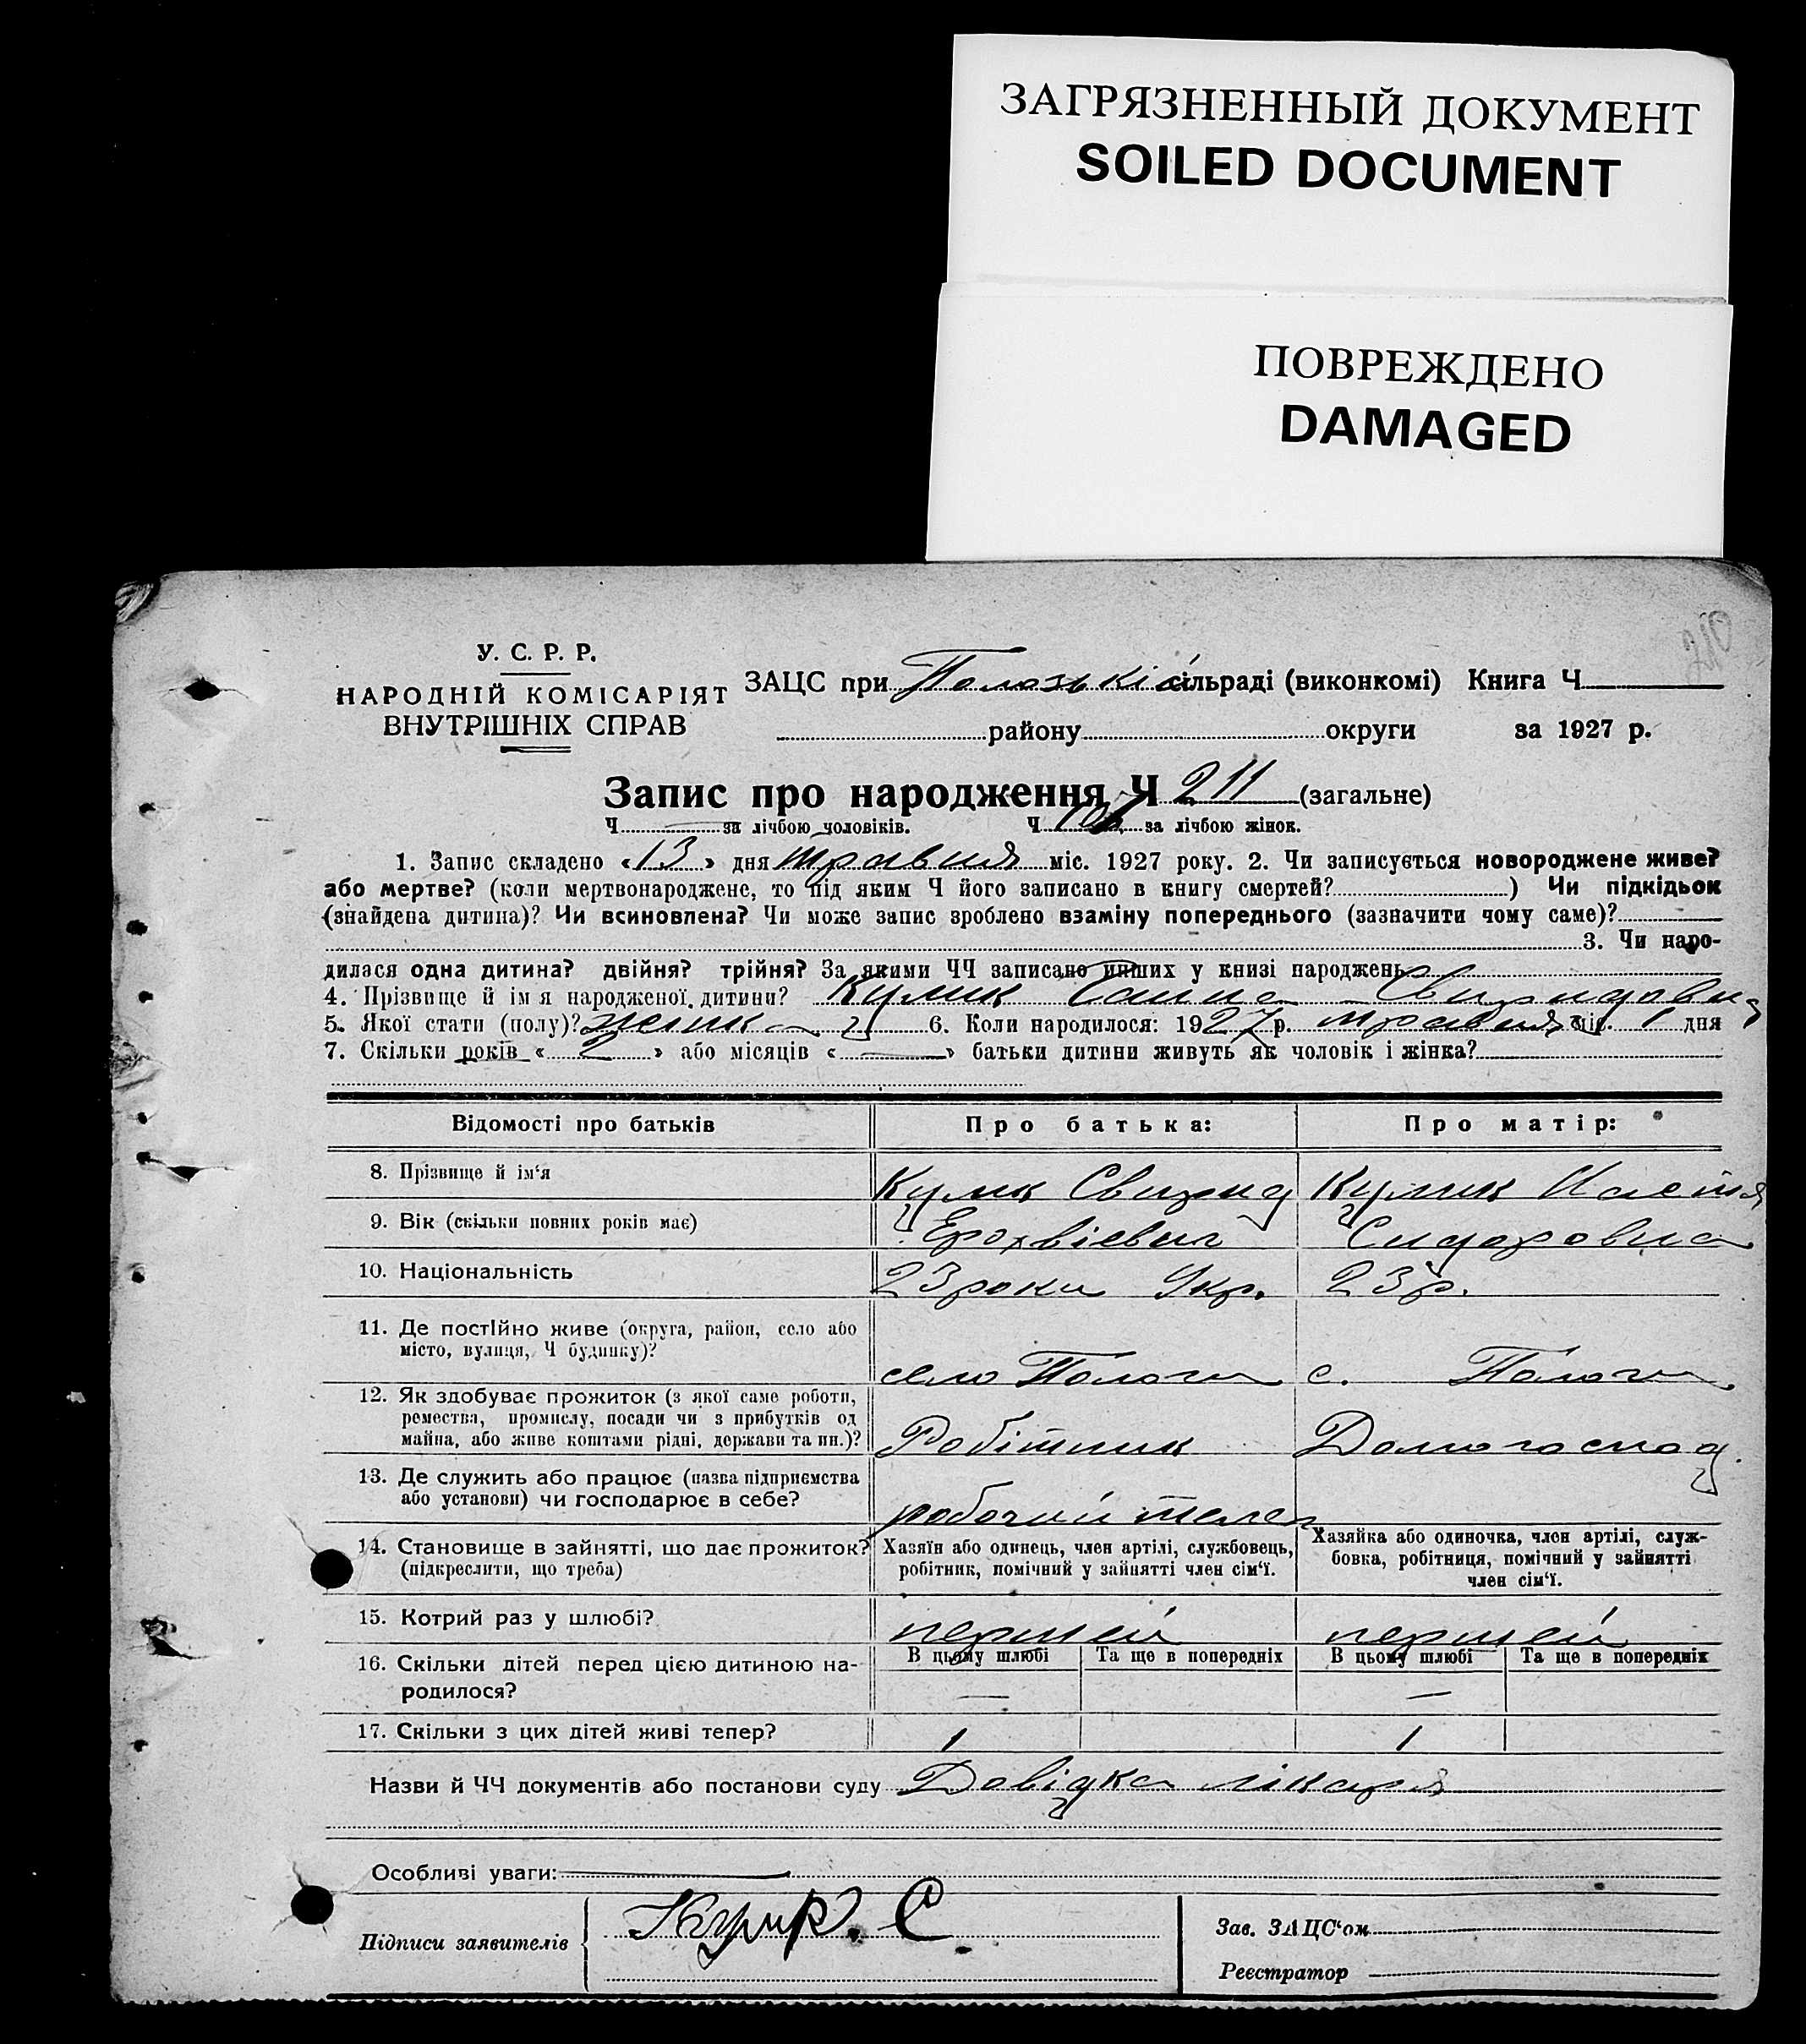 ЗАГРЯЗНЕННЫЙ ДОКУМЕНТ
SOILED DOCUMENT
ПОВРЕЖДЕНО
DAMAGED
210
У. С. Р. Р.
НАРОДНІЙ КОМІСАРІЯТ
ВНУТРІШНІХ СПРАВ
ЗАЦС при сільраді (виконкомі) Книга Ч
району округи за 1927 р.
Запис про народження Ч 211 (загальне)
Ч за лічбою чоловіків. Ч за лічбою жінок.
1. Запис складено «13» дня травня міс. 1927 року. 2. Чи записується новороджене живе?
або мертве? (коли мертвонароджене, то під яким Ч його записано в книгу смертей? ) Чи підкідьок
(знайдена дитина)? Чи всиновлена? Чи може запис зроблено взаміну попереднього (зазначити чому саме)?
3. Чи наро-
дилася одна дитина? двійня? трійня? За якими ЧЧ записано инших у книзі народжень
4. Прізвище й імя народженої дитини? Кулик Ганна Свиридовна
5. Якої стати (полу)? 6. Коли народилося: 1927 р. травня міс. 1 дня
7. Скільки років « 2 » або місяців « — » батьки дитини живуть як чоловік і жінка?
Відомості про батьків Про батька: Про матір:
8. Прізвище й ім‘я Кулик Свирид Кулик Настя
9. Вік (скільки повних років має) Сидоровна
10. Національність 23 роки Укр. 23 р.
11. Де постійно живе (округа, район, село або
місто, вулиця, Ч будинку)? село Пологи с. Пологи
12. Як здобуває прожиток (з якої саме роботи,
ремества, промислу, посади чи з прибутків од
майна, або живе коштами рідні, держави та ин.)? Робітник Домогоспод.
13. Де служить або працює (назва підприємства
або установи) чи господарює в себе? робочий
14. Становище в зайнятті, що дає прожиток?
(підкреслити, що треба)
Хазяїн або одинець, член артілі, службовець,
робітник, помічний у зайнятті член сім‘ї.
Хазяйка або одиночка, член артілі, служ-
бовка, робітниця, помічний у зайнятті
член сім‘ї.
15. Котрий раз у шлюбі? перший перший
16. Скільки дітей перед цією дитиною на-
родилося?
В цьому шлюбі Та ще в попередніх В цьому шлюбі Та ще в попередніх
— —
17. Скільки з цих дітей живі тепер? 1 1
Назви й ЧЧ документів або постанови суду Довідка лікаря
Особливі уваги:
Підписи заявителів
Зав. ЗАЦС‘ом
Реєстратор